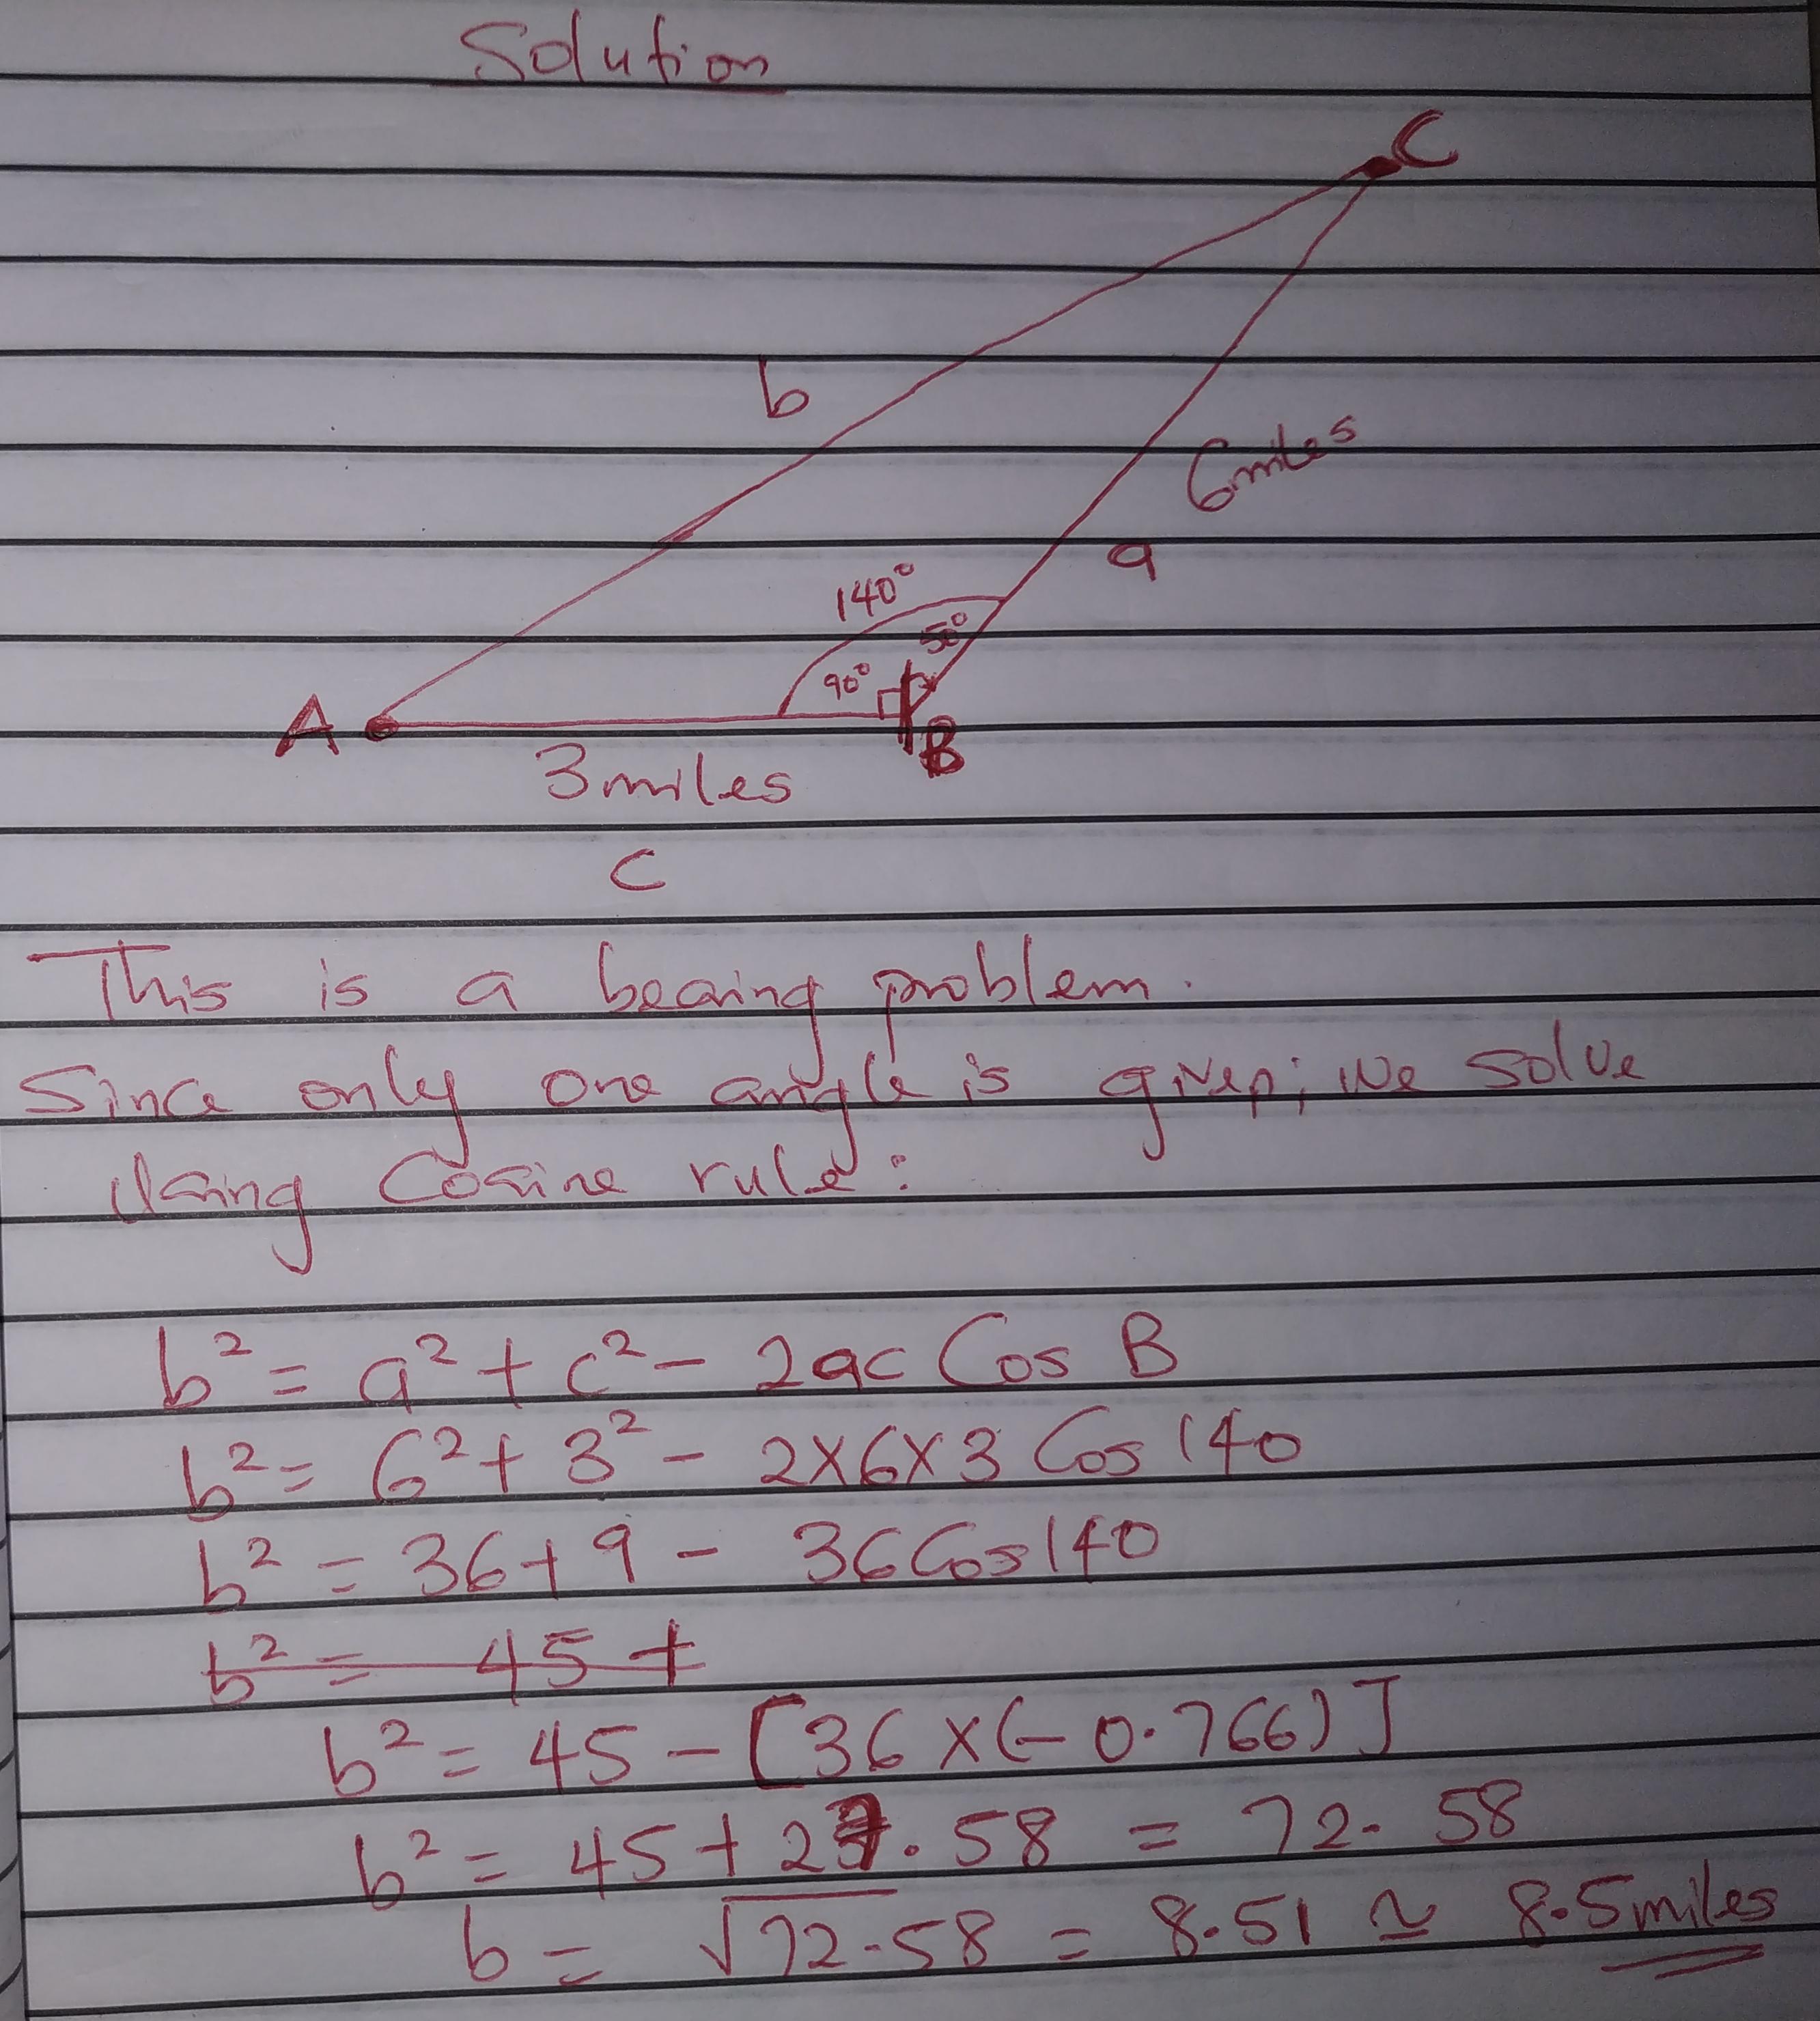 Solution
C
b
6miles
a
140°
50°
90°
A
B
3miles
c
This is a bearing problem.
Since only one angle is given; we solve
Using Cosine rule:
b² = a² + c² - 2ac Cos B
b² = 6² + 3² - 2×6×3 Cos 140
b² = 36 + 9 - 36 Cos 140
b² = 45 +
b² = 45 - [36 × (-0.766)]
b² = 45 + 27.58 = 72.58
b = √72.58 = 8.51 ≃ 8.5miles